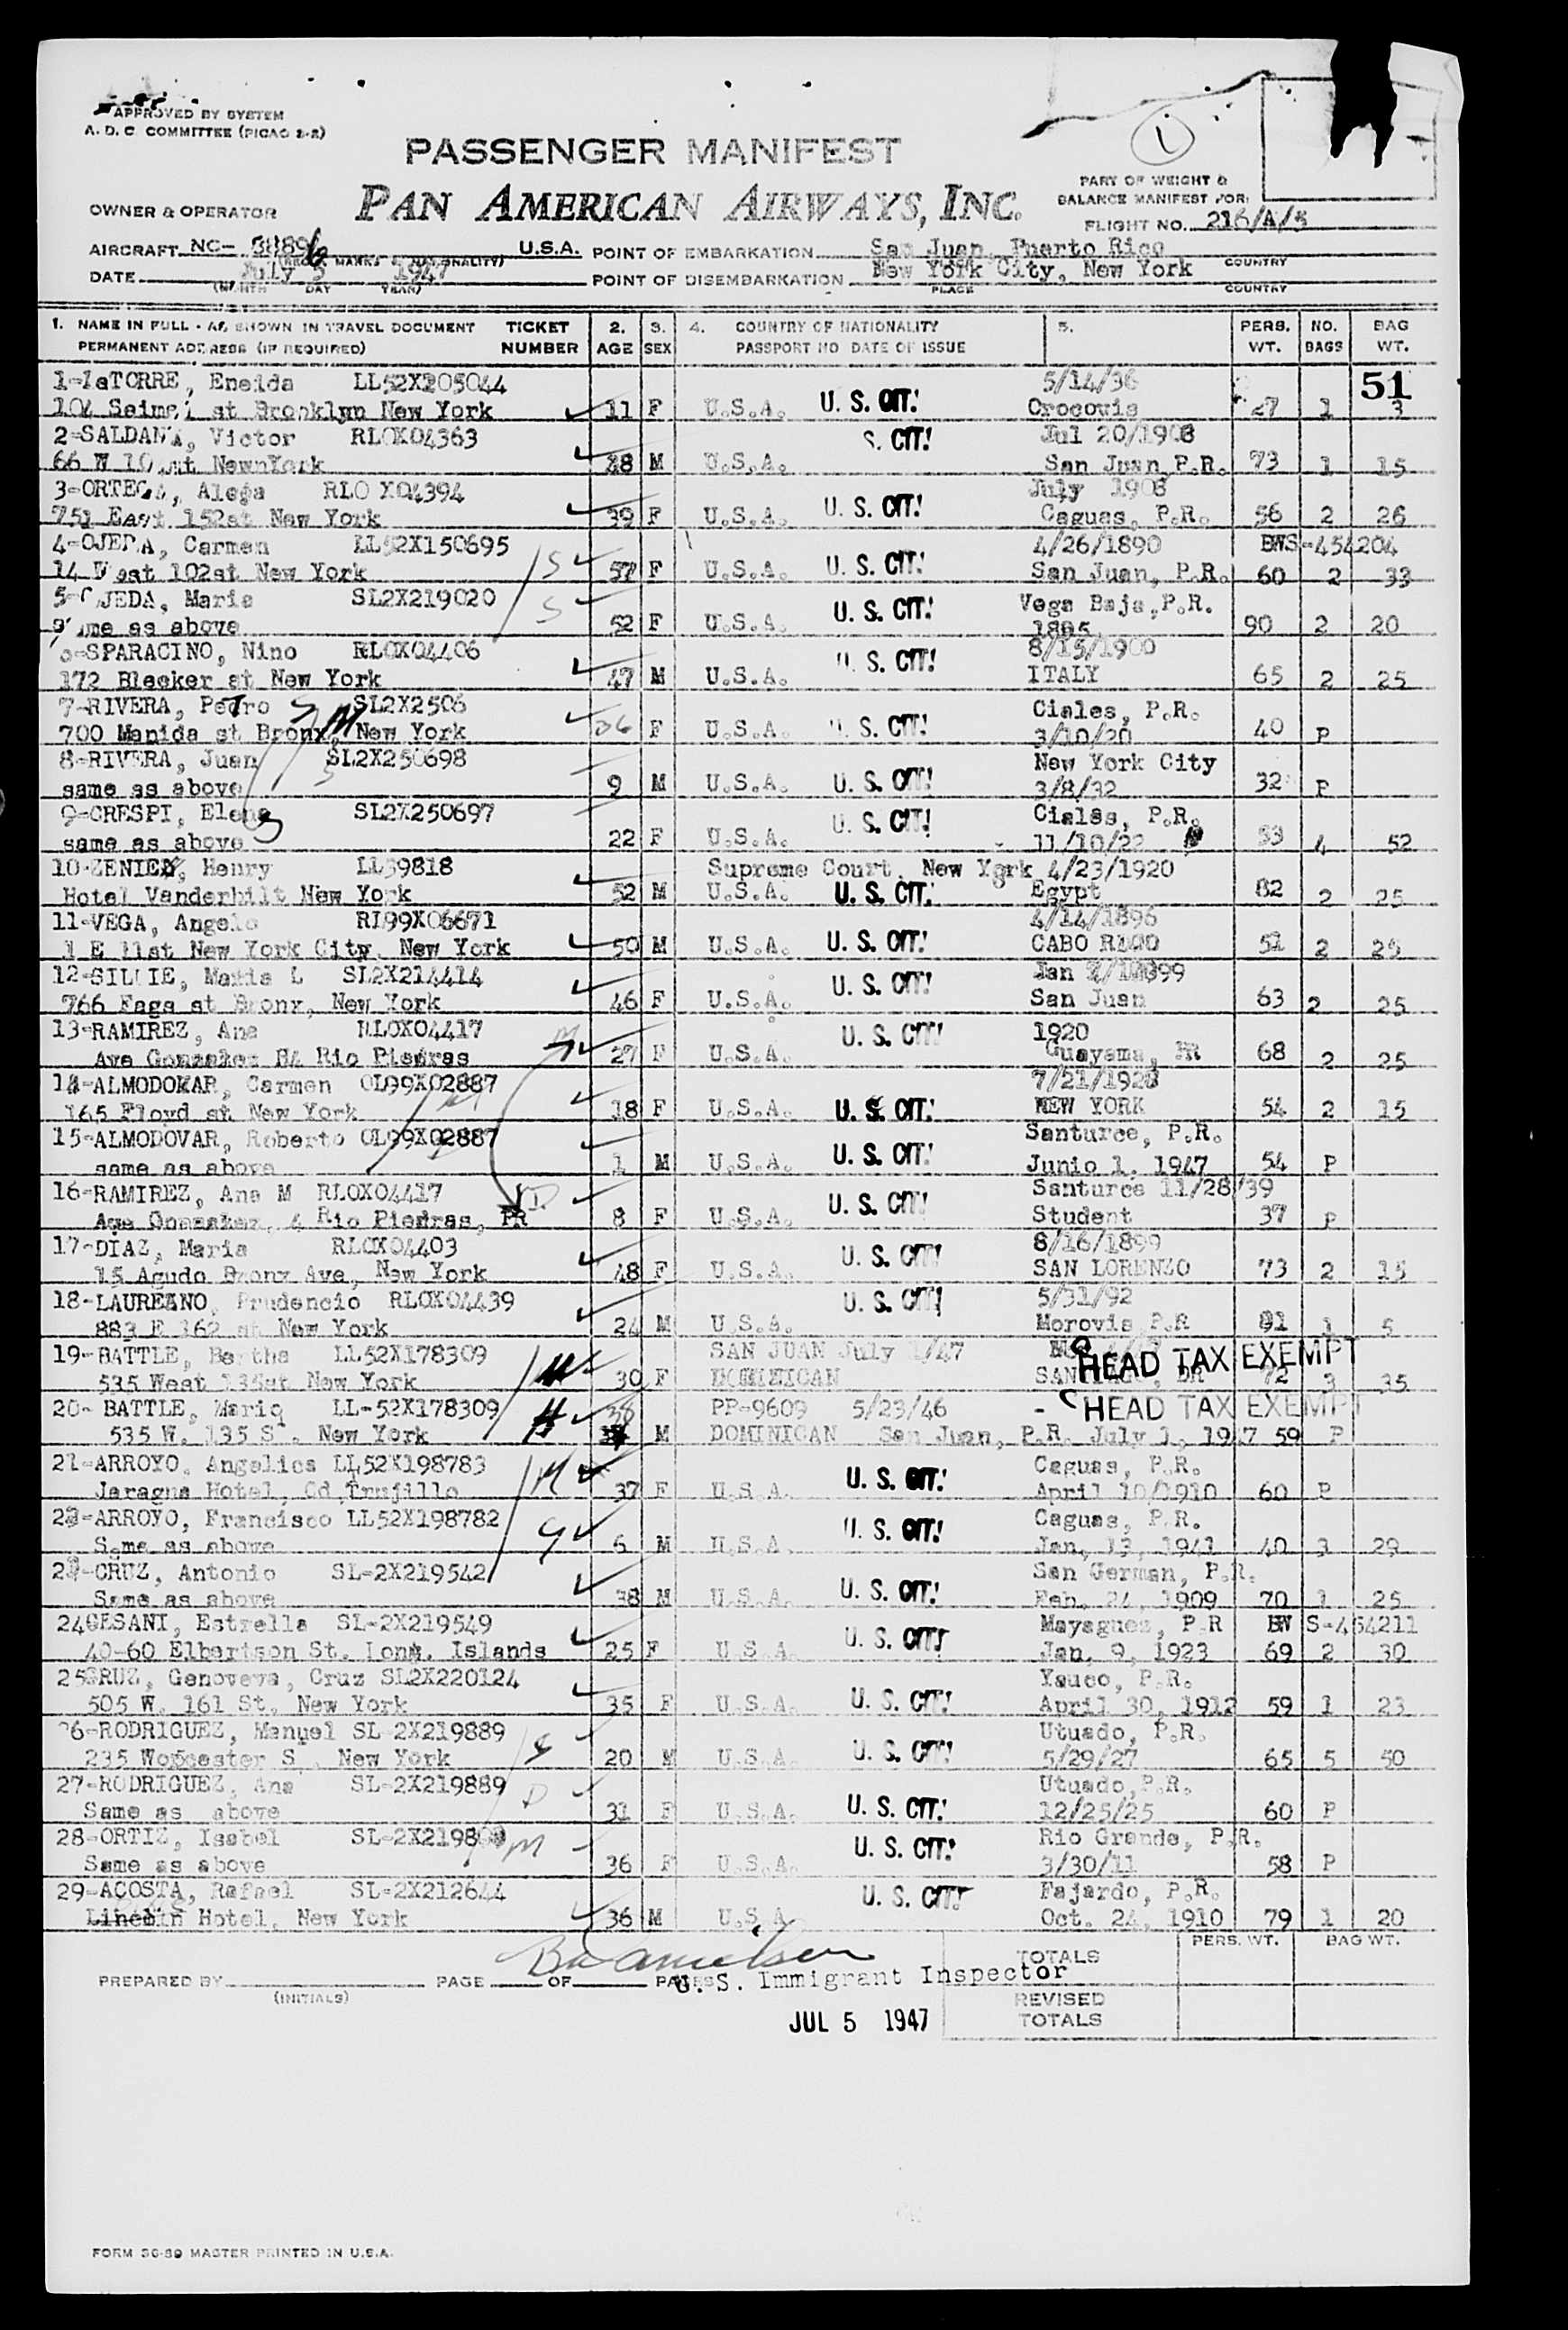 APPROVED BY SYSTEM
A. D. C. COMMITTEE (PICAO 2-2)
1
PASSENGER MANIFEST
PAN AMERICAN AIRWAYS, INC.
PART OF WEIGHT &
BALANCE MANIFEST FOR:
OWNER & OPERATOR
FLIGHT NO. 216/A/5
AIRCRAFT NC- 88896 U.S.A. POINT OF EMBARKATION San Juan, Puerto Rico
(REG. MARKS & NATIONALITY) PLACE COUNTRY
DATE July 5 1947 POINT OF DISEMBARKATION New York City, New York
(MONTH DAY YEAR) PLACE COUNTRY
1. NAME IN FULL - AS SHOWN IN TRAVEL DOCUMENT TICKET 2. 3. 4. COUNTRY OF NATIONALITY 5. PERS. NO. BAG
PERMANENT ADDRESS (IF REQUIRED) NUMBER AGE SEX PASSPORT NO DATE OF ISSUE WT. BAGS WT.
1-LaTORRE, Eneida LL52X205044 5/14/36 51
st Brooklyn New York 11 F U.S.A. U. S. CIT! Orocovis 27 1 3
2-SALDANA, Victor RLOX04363 S. CIT! Jul 20/1908
66 W st NewnYork 38 M U.S.A. San Juan P.R. 73 1 15
3-ORTEGA, Aleja RLO X04394 July 1908
751 East 152st New York 39 F U.S.A. U. S. CIT! Caguas, P.R. 56 2 26
4-OJEDA, Carmen LL52X150695 S 4/26/1890 BWS-454204
14 West 102st New York 57 F U.S.A. U. S. CIT! San Juan, P.R. 60 2 33
5-OJEDA, Maria SL2X219020 S U. S. CIT! Vega Baja,P.R.
same as above 52 F U.S.A. 1895 90 2 20
6-SPARACINO, Nino RLOX04406 U. S. CIT! 8/15/1900
172 Bleeker st New York 47 M U.S.A. ITALY 65 2 25
7-RIVERA, Pedro SL2X2506 M Ciales, P.R.
700 Manida st Bronx, New York 26 F U.S.A. U. S. CIT! 3/10/20 40 P
8-RIVERA, Juan SL2X250698 S New York City
same as above 9 M U.S.A. U. S. CIT! 3/8/32 32 P
9-CRESPI, Elena SL2X250697 U. S. CIT! Ciales, P.R.
same as above 22 F U.S.A. 11/10/22 53 4 52
10-ZENIEX, Henry LL59818 Supreme Court, New York 4/23/1920
Hotel Vanderbilt New York 52 M U.S.A. U. S. CIT! Egypt 82 2 25
11-VEGA, Angelo RI99X06671 4/14/1896
1 E 11st New York City, New York 50 M U.S.A. U. S. CIT! CABO ROJO 51 2 25
12-SILLIE, Maria L SL2X214414 U. S. CIT! Jan
766 Faga st Bronx, New York 46 F U.S.A. San Juan 63 2 25
13-RAMIREZ, Ana RLOX04417 M U. S. CIT! 1920
Ave Gonzalez 84 Rio Piedras 27 F U.S.A. Guayama, PR 68 2 25
14-ALMODOKAR, Carmen OL99X02887 7/21/1928
165 Floyd st New York 18 F U.S.A. U. S. CIT! NEW YORK 54 2 15
15-ALMODOVAR, Roberto OL99X02887 Santurce, P.R.
same as above 1 M U.S.A. U. S. CIT! Junio 1, 1947 54 P
16-RAMIREZ, Ana M RLOX04417 D U. S. CIT! Santurce 11/28/39
Ave Gonzalez, 4 Rio Piedras, PR 8 F U.S.A. Student 37 P
17-DIAZ, Maria RLOX04403 U. S. CIT! 8/16/1899
15 Agudo Bronx Ave, New York 48 F U.S.A. SAN LORENZO 73 2 15
18-LAUREANO, Prudencio RLOX04439 U. S. CIT! 5/31/92
883 E 162 st New York 24 M U.S.A. Morovis P.R 91 1 5
19-BATTLE, Bertha LL52X178309 SAN JUAN July 1/47 HEAD TAX EXEMPT
535 West 135st New York 30 F DOMINICAN DR 72 3 35
20- BATTLE, Mariq LL-52X178309 38 PP-9609 5/23/46 - HEAD TAX EXEMPT
535 W. 135 St. New York M DOMINICAN San Juan, P.R. July 1, 1947 59 P
21-ARROYO, Angelica LL52X198783 M Caguas, P.R.
Jaragua Hotel, Cd Trujillo 37 F U.S.A. U. S. CIT! April 10/1910 60 P
22-ARROYO, Francisco LL52X198782 U. S. CIT! Caguas, P.R.
Same as above 6 M U.S.A. Jan, 13, 1941 40 3 29
23-CRUZ, Antonio SL-2X219542 San German, P.R.
Same as above 38 M U.S.A. U. S. CIT! Feb, 24, 1909 70 1 25
24GESANI, Estrella SL-2X219549 Mayaguez, P.R BW S-454211
40-60 Elbertson St. Long. Islands 25 F U.S.A. U. S. CIT! Jan, 9, 1923 69 2 30
25CRUZ, Genoveva, Cruz SL2X220124 Yauco, P.R.
505 W. 161 St, New York 35 F U.S.A. U. S. CIT! April 30, 1912 59 1 23
26-RODRIGUEZ, Manuel SL-2X219889 S Utuado, P.R.
235 Worcester S . New York 20 M U.S.A. U. S. CIT! 5/29/27 65 5 50
27-RODRIGUEZ, Ana SL-2X219889 D Utuado,P.R.
Same as above 31 F U.S.A. U. S. CIT! 12/25/25 60 P
28-ORTIZ, Isabel M U. S. CIT! Rio Grande, P.R.
Same as above 36 F U.S.A. 3/30/11 58 P
29-ACOSTA, Rafael SL-2X212644 U. S. CIT! Fajardo, P.R.
Lincoln Hotel, New York 36 M U.S.A Oct. 24, 1910 79 1 20
PERS. WT. BAG WT.
TOTALS
PREPARED BY PAGE OF PAGES U. S. Immigrant Inspector
(INITIALS) REVISED
JUL 5 1947 TOTALS
FORM 36-89 MASTER PRINTED IN U.S.A.